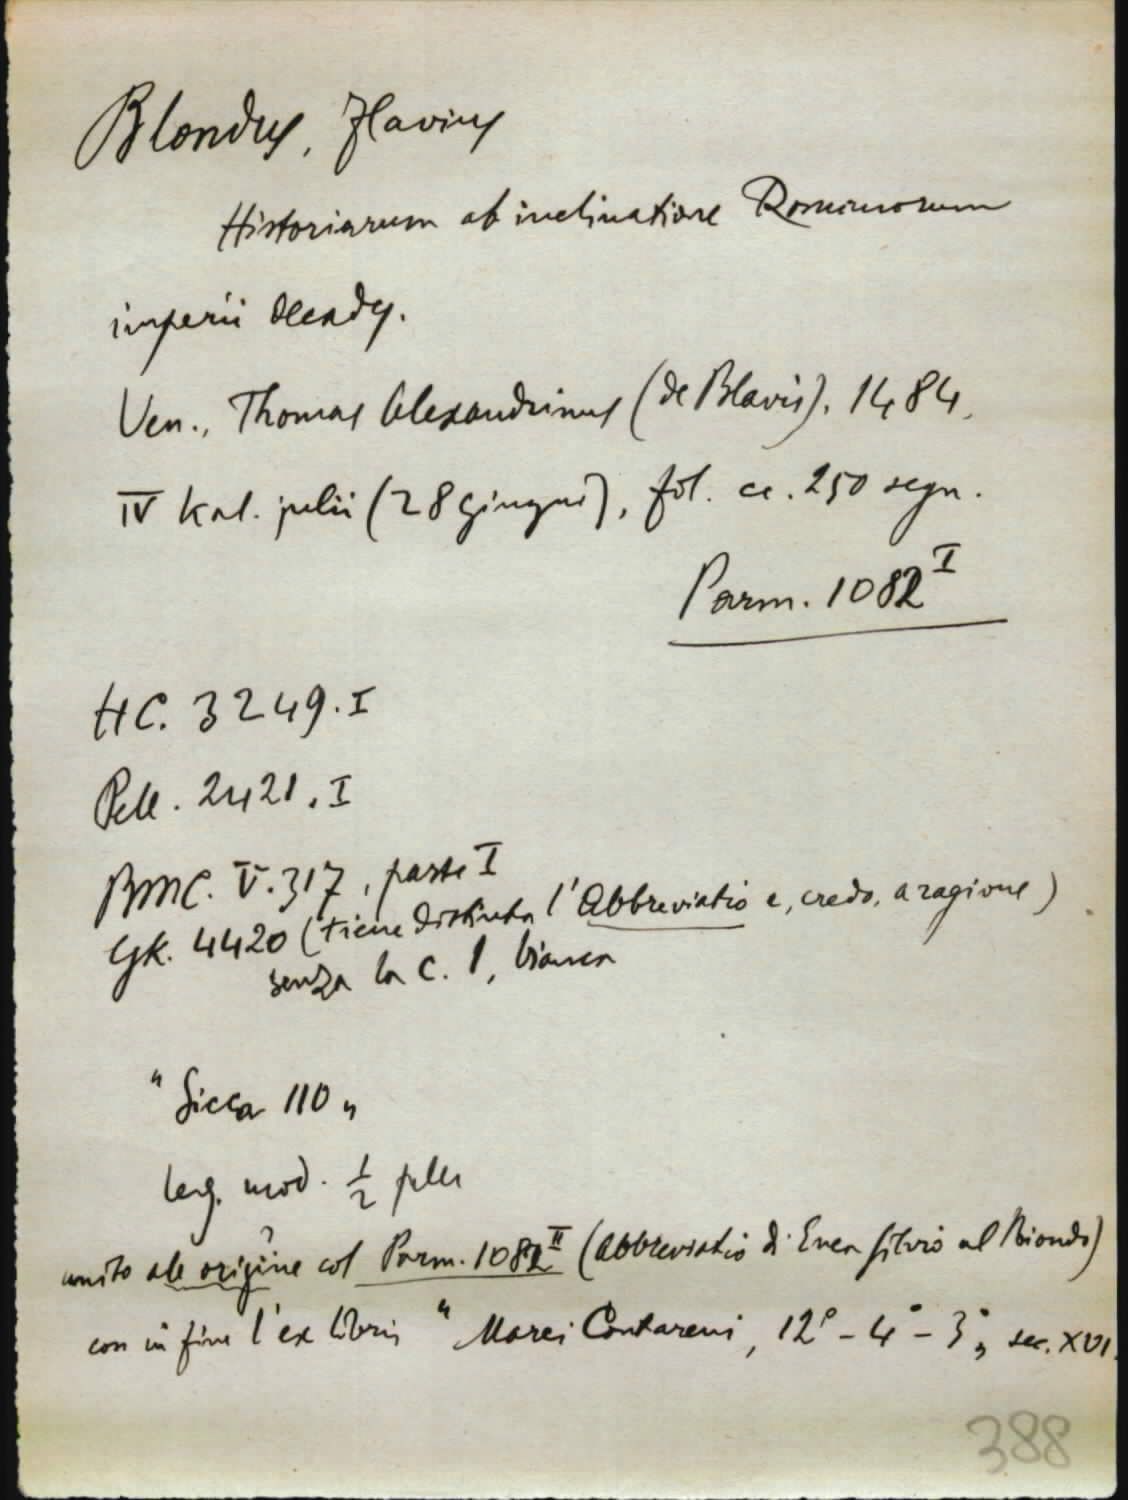 Blondus, Flavius
Historiarum ab inclinatione Romanorum
imperii decades.
Ven., Thomas Alexandrinus (de Blavis), 1484,
IV Kal. julii (28 giugno), fol. cc. 250 segn.
Parm. 1082 I
HC. 3249. I
Pell. 2421. I
BMC. V. 317, parte I
GK. 4420 (tiene distinta l'Abbreviatio e, credo, a ragione)
senza la c. 1, bianca
"Sicca 110"
leg. mod. ½ pelle
unito ab origine col Parm. 1082 II (Abbreviatio di Enea Silvio al Biondo)
con in fine l'ex libris "Marci Contareni, 12° - 4° - 3°" sec. XVI.
388